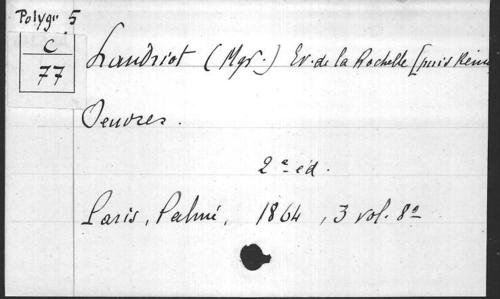 Polygr. 5
C
77
Landriot (Mgr.) Ev. de la Rochelle [puis Reims
Oeuvres.
2e éd.
Paris, Palmé, 1864, 3 vol. 8o